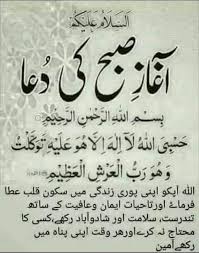 السلام علیکم
آغاز صبح کی دعا
بِسْمِ اللهِ الرَّحْمٰنِ الرَّحِيْمِ
حَسْبِىَ اللهُ لَآ اِلٰهَ اِلَّا هُوَ عَلَيْهِ تَوَكَّلْتُ
وَهُوَ رَبُّ الْعَرْشِ الْعَظِيْمِ
اللہ آپکو اپنی پوری زندگی میں سکون قلب عطا
فرمائے اورتاحیات ایمان وعافیت کے ساتھ
تندرست، سلامت اور شادوآباد رکھے،کسی کا
محتاج نہ کرے اورہر وقت اپنی پناہ میں
رکھے آمین